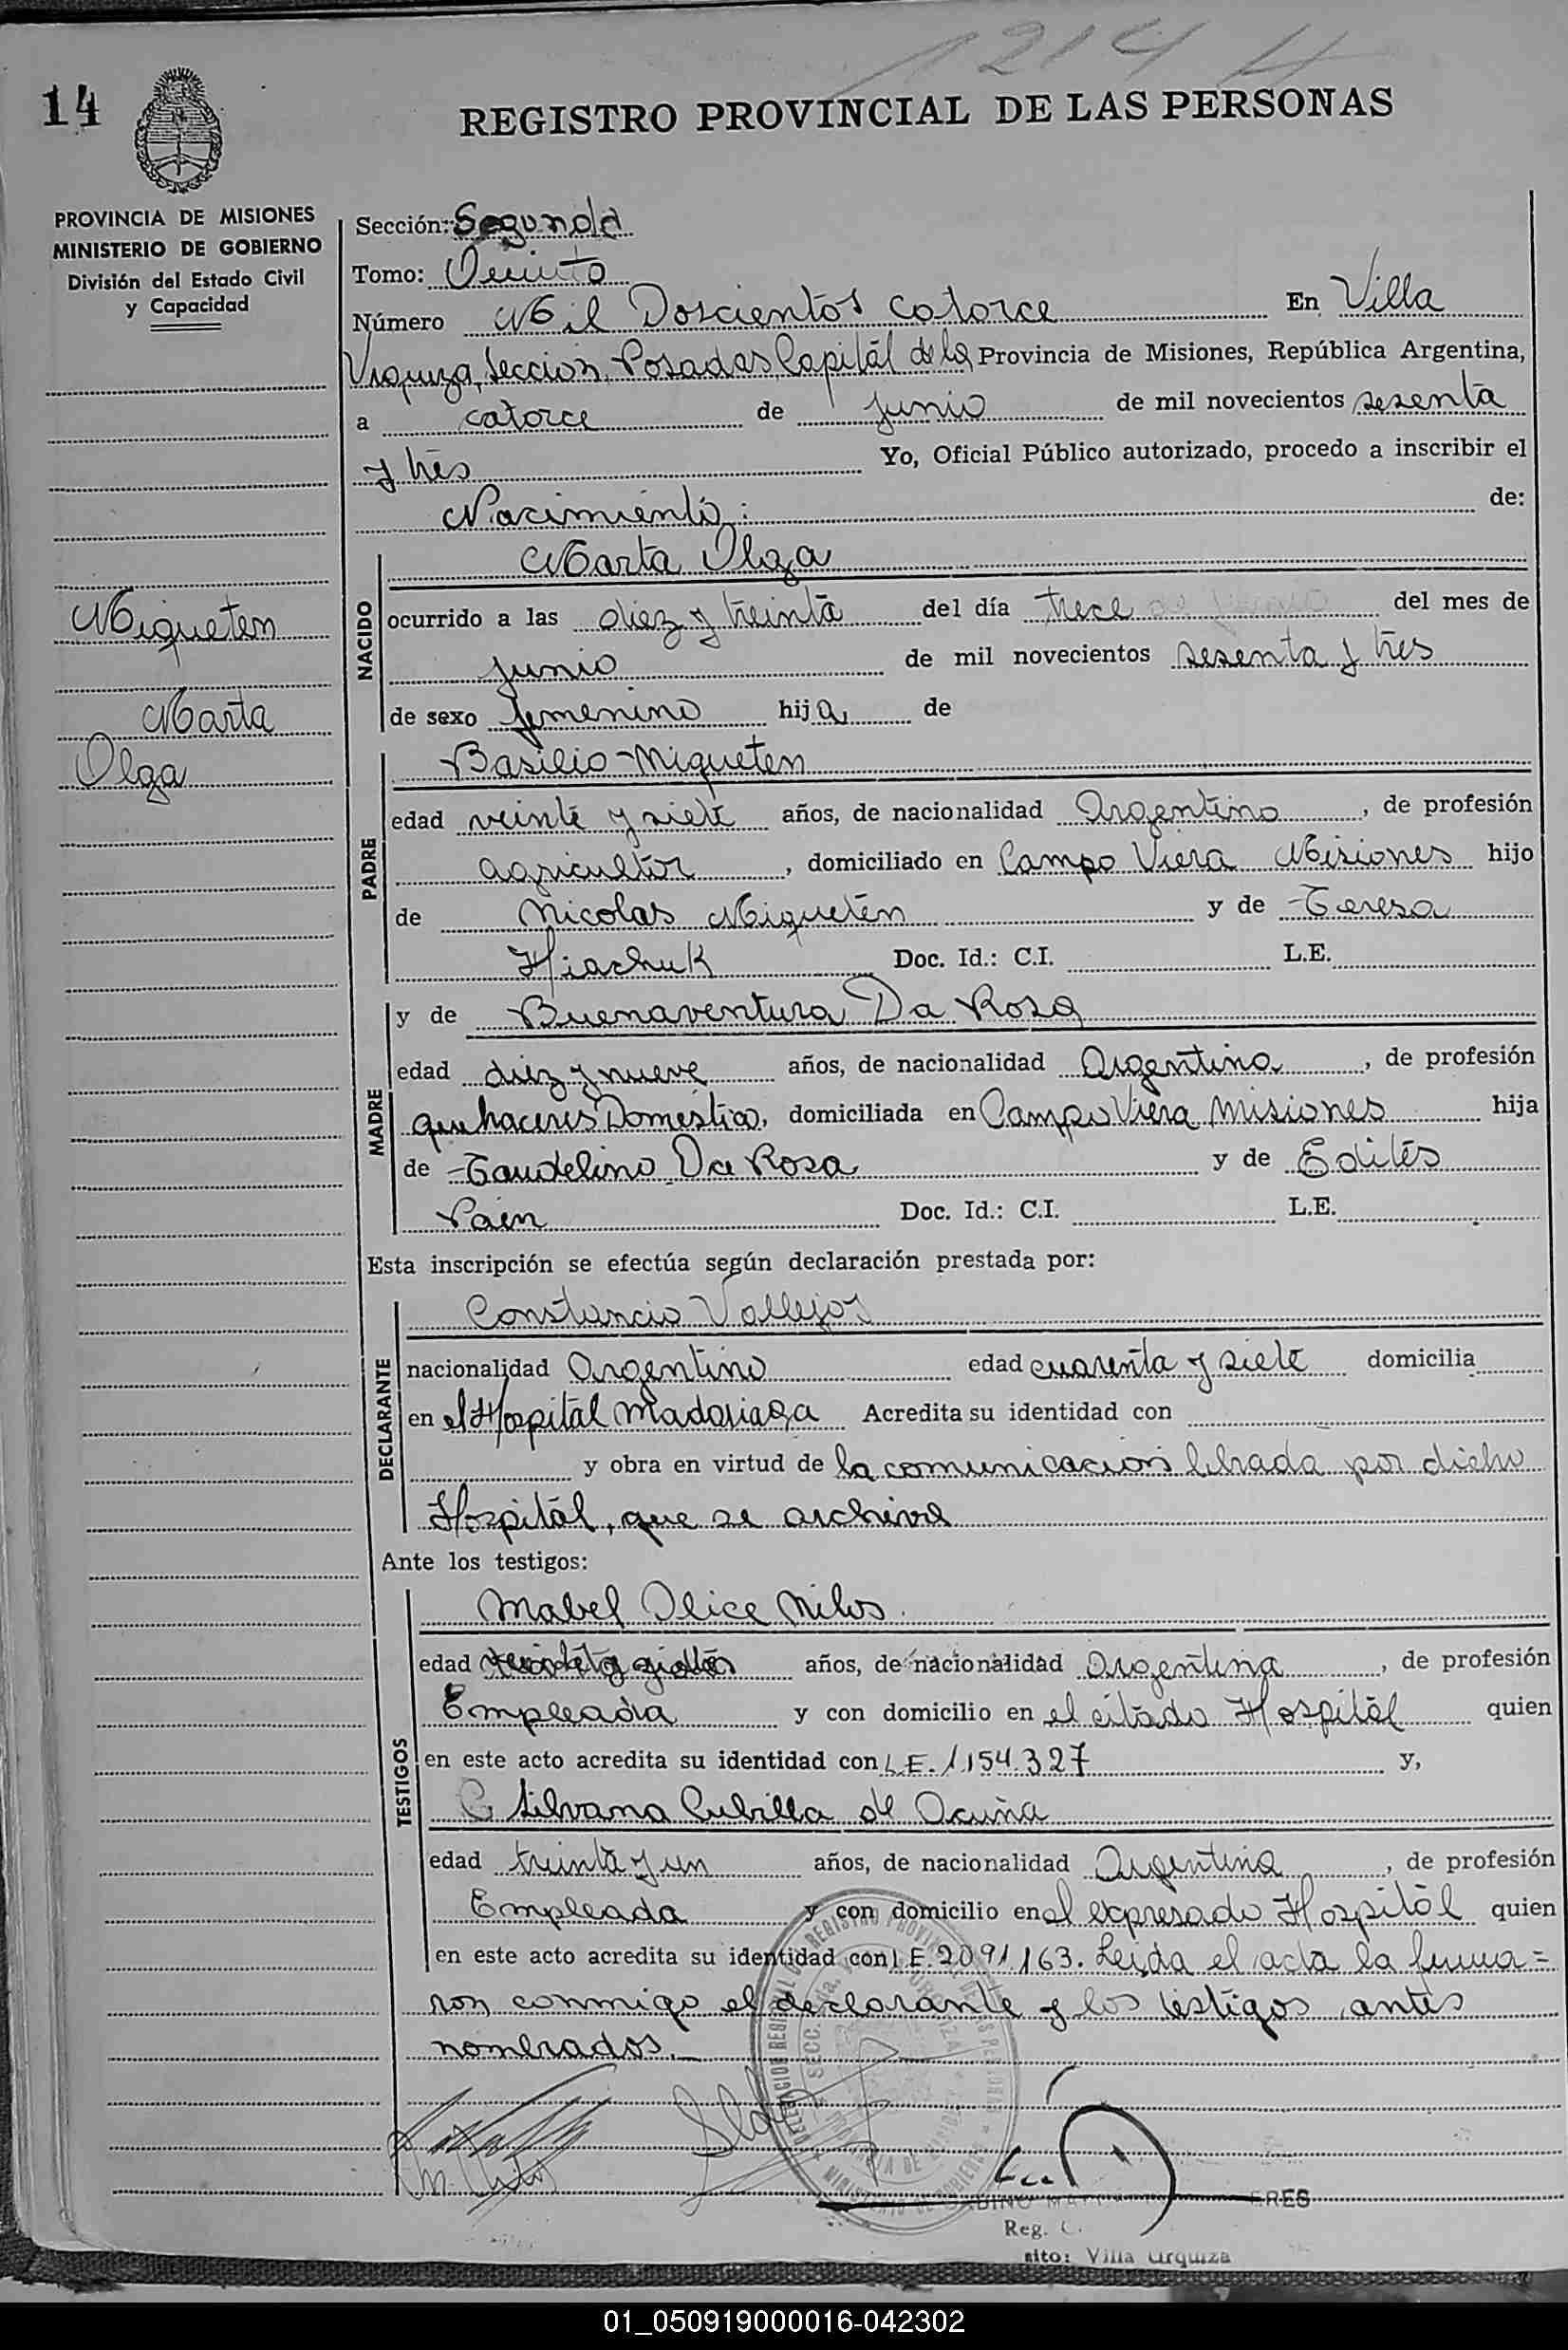 1214
14
REGISTRO PROVINCIAL DE LAS PERSONAS
PROVINCIA DE MISIONES
MINISTERIO DE GOBIERNO
División del Estado Civil
y Capacidad
Miqueten
Marta
Olga
Sección: Segunda
Tomo: Quinto
Número Mil Doscientos catorce En Villa
Urquiza, Seccion, Posadas, Capital de la Provincia de Misiones, República Argentina,
a catorce de junio de mil novecientos sesenta
y tres Yo, Oficial Público autorizado, procedo a inscribir el
Nacimiento: de:
NACIDO
Marta Olga
ocurrido a las diez y treinta del día trece del mes de
junio de mil novecientos sesenta y tres
de sexo femenino hija de
PADRE
Basilio Miqueten
edad veinte y siete años, de nacionalidad Argentino, de profesión
agricultor, domiciliado en Campo Viera Misiones hijo
de Nicolas Miqueten y de Teresa
Hiachuk Doc. Id.: C.I. L.E.
MADRE
y de Buenaventura Da Rosa
edad diez y nueve años, de nacionalidad Argentina, de profesión
quehaceres Domestico, domiciliada en Campo Viera Misiones hija
de Taudelino Da Rosa y de Edites
Paen Doc. Id.: C.I. L.E.
Esta inscripción se efectúa según declaración prestada por:
DECLARANTE
Constancio Vallejos
nacionalidad Argentino edad cuarenta y siete domicilia
en el Hospital Madariaga Acredita su identidad con
y obra en virtud de la comunicacion librada por dicho
Hospital, que se archiva
Ante los testigos:
TESTIGOS
Mabel Olice Milos
edad años, de nacionalidad Argentina, de profesión
Empleada y con domicilio en el citado Hospital quien
en este acto acredita su identidad con L.E. 1.154.327 y,
Silvana Cubilla de Acuña
edad treinta y un años, de nacionalidad Argentina, de profesión
Empleada y con domicilio en el expresado Hospital quien
en este acto acredita su identidad con L.E. 2091.163. Leida el acta la firma=
ron conmigo el declarante y los testigos antes
nombrados.
Reg.
Villa Urquiza
01_050919000016-042302